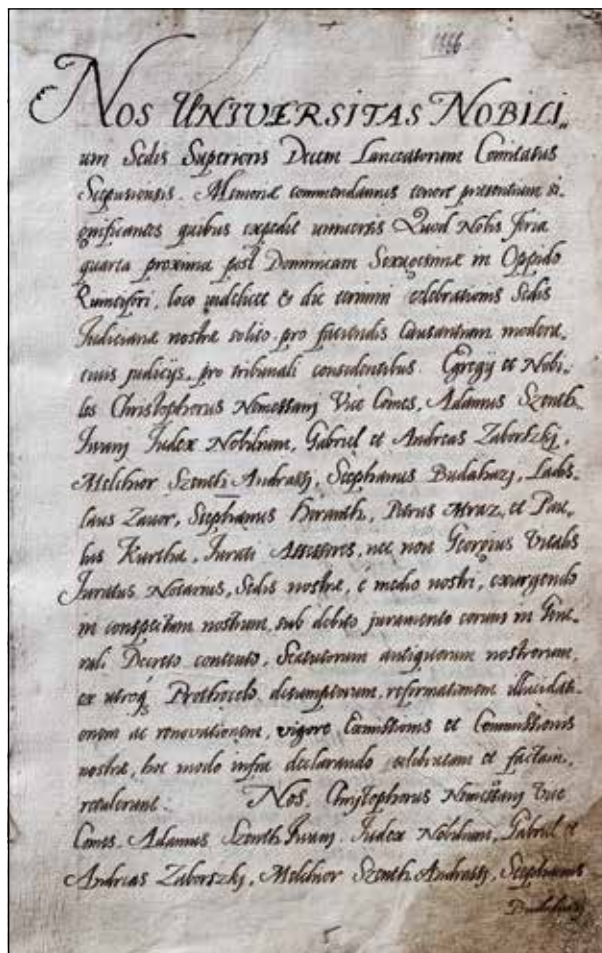 1666
NOS UNIVERSITAS NOBILI„
um Sedis Superioris Decem Lanceatorum Comitatus
Scepusiensis. Memoriæ commendamus tenore presentium si„
gnificantes quibus expedit universis Quod Nobis feria
quarta proxima post Dominicam Sexagesimæ in Oppido
loco videlicet & die termini celebrationis Sedis
Judiciariæ nostræ solito, pro faciendis Causantium modera„
tivis judicijs, pro tribunali consedentibus. Egregij et Nobi„
les Christophorus Nemessanj Vice Comes, Adamus Szenth„
Iwanj Judex Nobilium, Gabriel et Andreas Zaborszkj,
Melchior Szenth Andrassj, Stephanus Budahazj, Ladis„
laus Zawor, Stephanus Horvath, Petrus Mraz, et Pau„
lus Kurtha, Jurati Assessores, nec non Georgius Vitalis
Juratus Notarius, Sedis nostræ, è medio nostri, exurgendo
in conspectum nostrum, sub debito juramento eorum in Gene„
rali Decreto contento, Statutorum antiquorum nostrorum,
ex utroq3 Prothocolo desumptorum, reformationem illucidati„
onem ac renovationem, vigore Exmissionis et Commissionis
nostræ, hoc modo infra declarando celebratam et factam,
retulerunt. Nos, Christophorus Nemessanj Vice
Comes, Adamus Szenth Iwanj, Judex Nobilium, Gabriel et
Andreas Zaborszkj, Melchior Szenth Andrassj, Stephanus
Budahazj
5